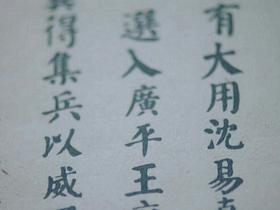 有大用沈易
選入廣平王
得集兵以威